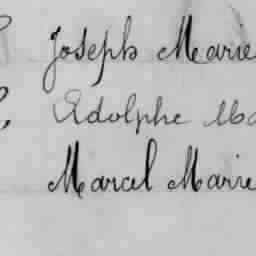 Joseph Marie
Adolphe Ma
Marcel Marie